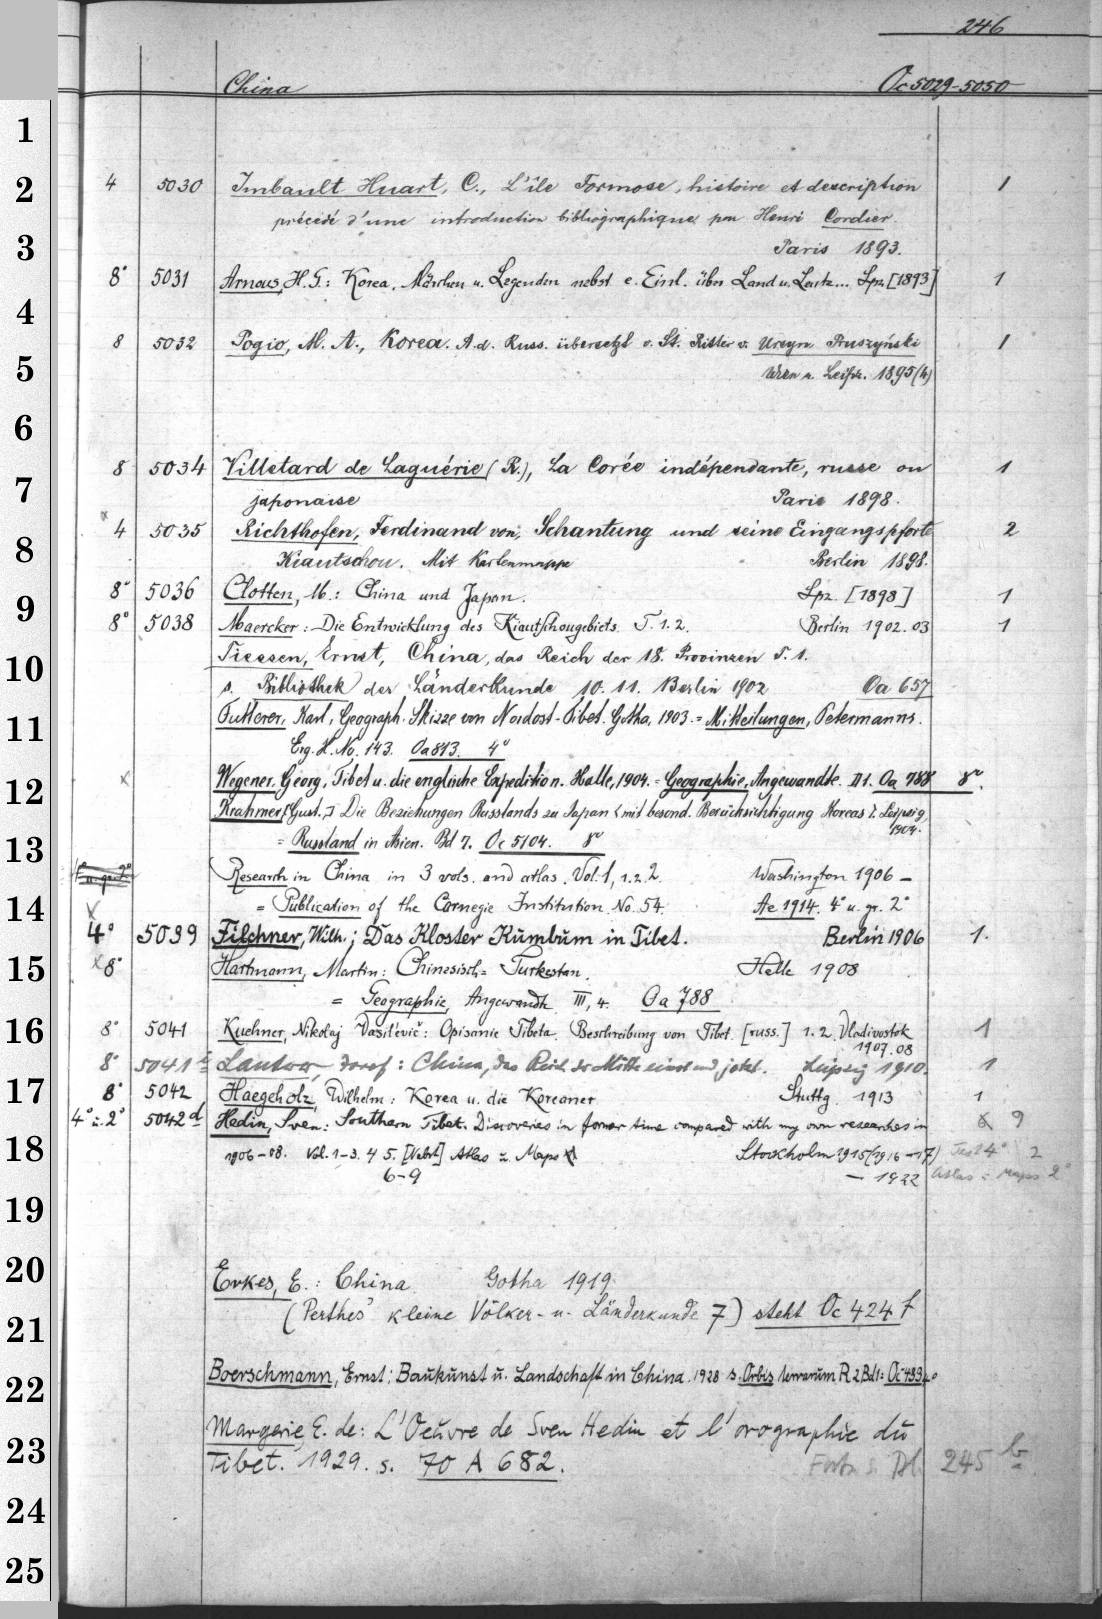 246
China Oc 5029-5050
1
2
3
4
5
6
7
8
9
10
11
12
13
14
15
16
17
18
19
20
21
22
23
24
25
4 5030 Imbault Huart, C., L'île Formose, histoire et description 1
précédé d'une introduction bibliographique par Henri Cordier.
Paris 1893.
8° 5031 Arnous, H. G.: Korea. Märchen u. Legenden nebst e. Einl. über Land u. Leute... Lpz. [1893] 1
8 5032 Pogio, M. A., Korea. A. d. Russ. übersetzt v. St. Ritter v. Ursyn Pruszyński 1
Wien u. Leipz. 1895(4)
8 5034 Villetard de Laguérie (R.), La Corée indépendante, russe ou 1
japonaise Paris 1898.
x
4 5035 Richthofen, Ferdinand von, Schantung und seine Eingangspforte 2
Kiautschou. Mit Kartenmappe Berlin 1898.
8° 5036 Clotten, M.: China und Japan. Lpz. [1898] 1
8° 5038 Maercker: Die Entwicklung des Kiautschougebiets. T. 1. 2. Berlin 1902. 03 1
Tiessen, Ernst, China, das Reich der 18. Provinzen T. 1.
s. Bibliothek der Länderkunde 10. 11. Berlin 1902 Oa 657
Futterer, Karl, Geograph. Skizze von Nordost-Tibet. Gotha, 1903. = Mitteilungen, Petermanns.
Erg. H. No. 143. Oa 813. 4°
x Wegener, Georg, Tibet u. die englische Expedition. Halle, 1904. = Geographie, Angewandte. II 1. Oa 788 8°.
Krahmer, [Gust.,] Die Beziehungen Russlands zu Japan <mit besond. Berücksichtigung Koreas>. Leipzig,
1904.
= Russland in Asien. Bd 7. Oc 5104. 8°
Research in China in 3 vols. and atlas. Vol. 1, 1.2. 2. Washington 1906 -
x = Publication of the Carnegie Institution. No. 54. Ae 1914. 4° u. gr. 2°
4° 5039 Filchner, Wilh.; Das Kloster Kumbum in Tibet. Berlin 1906 1.
x 8° Hartmann, Martin: Chinesisch= Turkestan. Halle 1908
= Geographie, Angewandte III, 4. Oa 788
8° 5041 Kuehner, Nikolaj Vasilevič: Opisanie Tibeta. Beschreibung von Tibet. [russ.] 1. 2. Vladivostok 1
1907. 08
8° 5041 Josef: China, das Reich der Mitte einst und jetzt. Leipzig 1910. 1
8° 5042 Haegeholz, Wilhelm: Korea u. die Koreaner Stuttg. 1913 1
4° u. 2° 5042d Hedin, Sven: Southern Tibet. Discoveries in former time compared with my own researches in 9
1906-08. Vol. 1-3. 4 5. [Nebst] Atlas Maps Stockholm 1915(1916-17) 4° 2
6-9 - 1922 Atlas Maps 2°
Erkes, E.: China Gotha 1919.
(Perthes' kleine Völker- u. Länderkunde 7) steht Oc 424 f
Boerschmann, Ernst: Baukunst u. Landschaft in China. 1928 s. Orbis terrarum R 2 Bd 1:
Margerie, E. de: L'Oeuvre de Sven Hedin et l'orographie du
Tibet. 1929. s. 70 A 682. Forts. s. Bl. 245 b